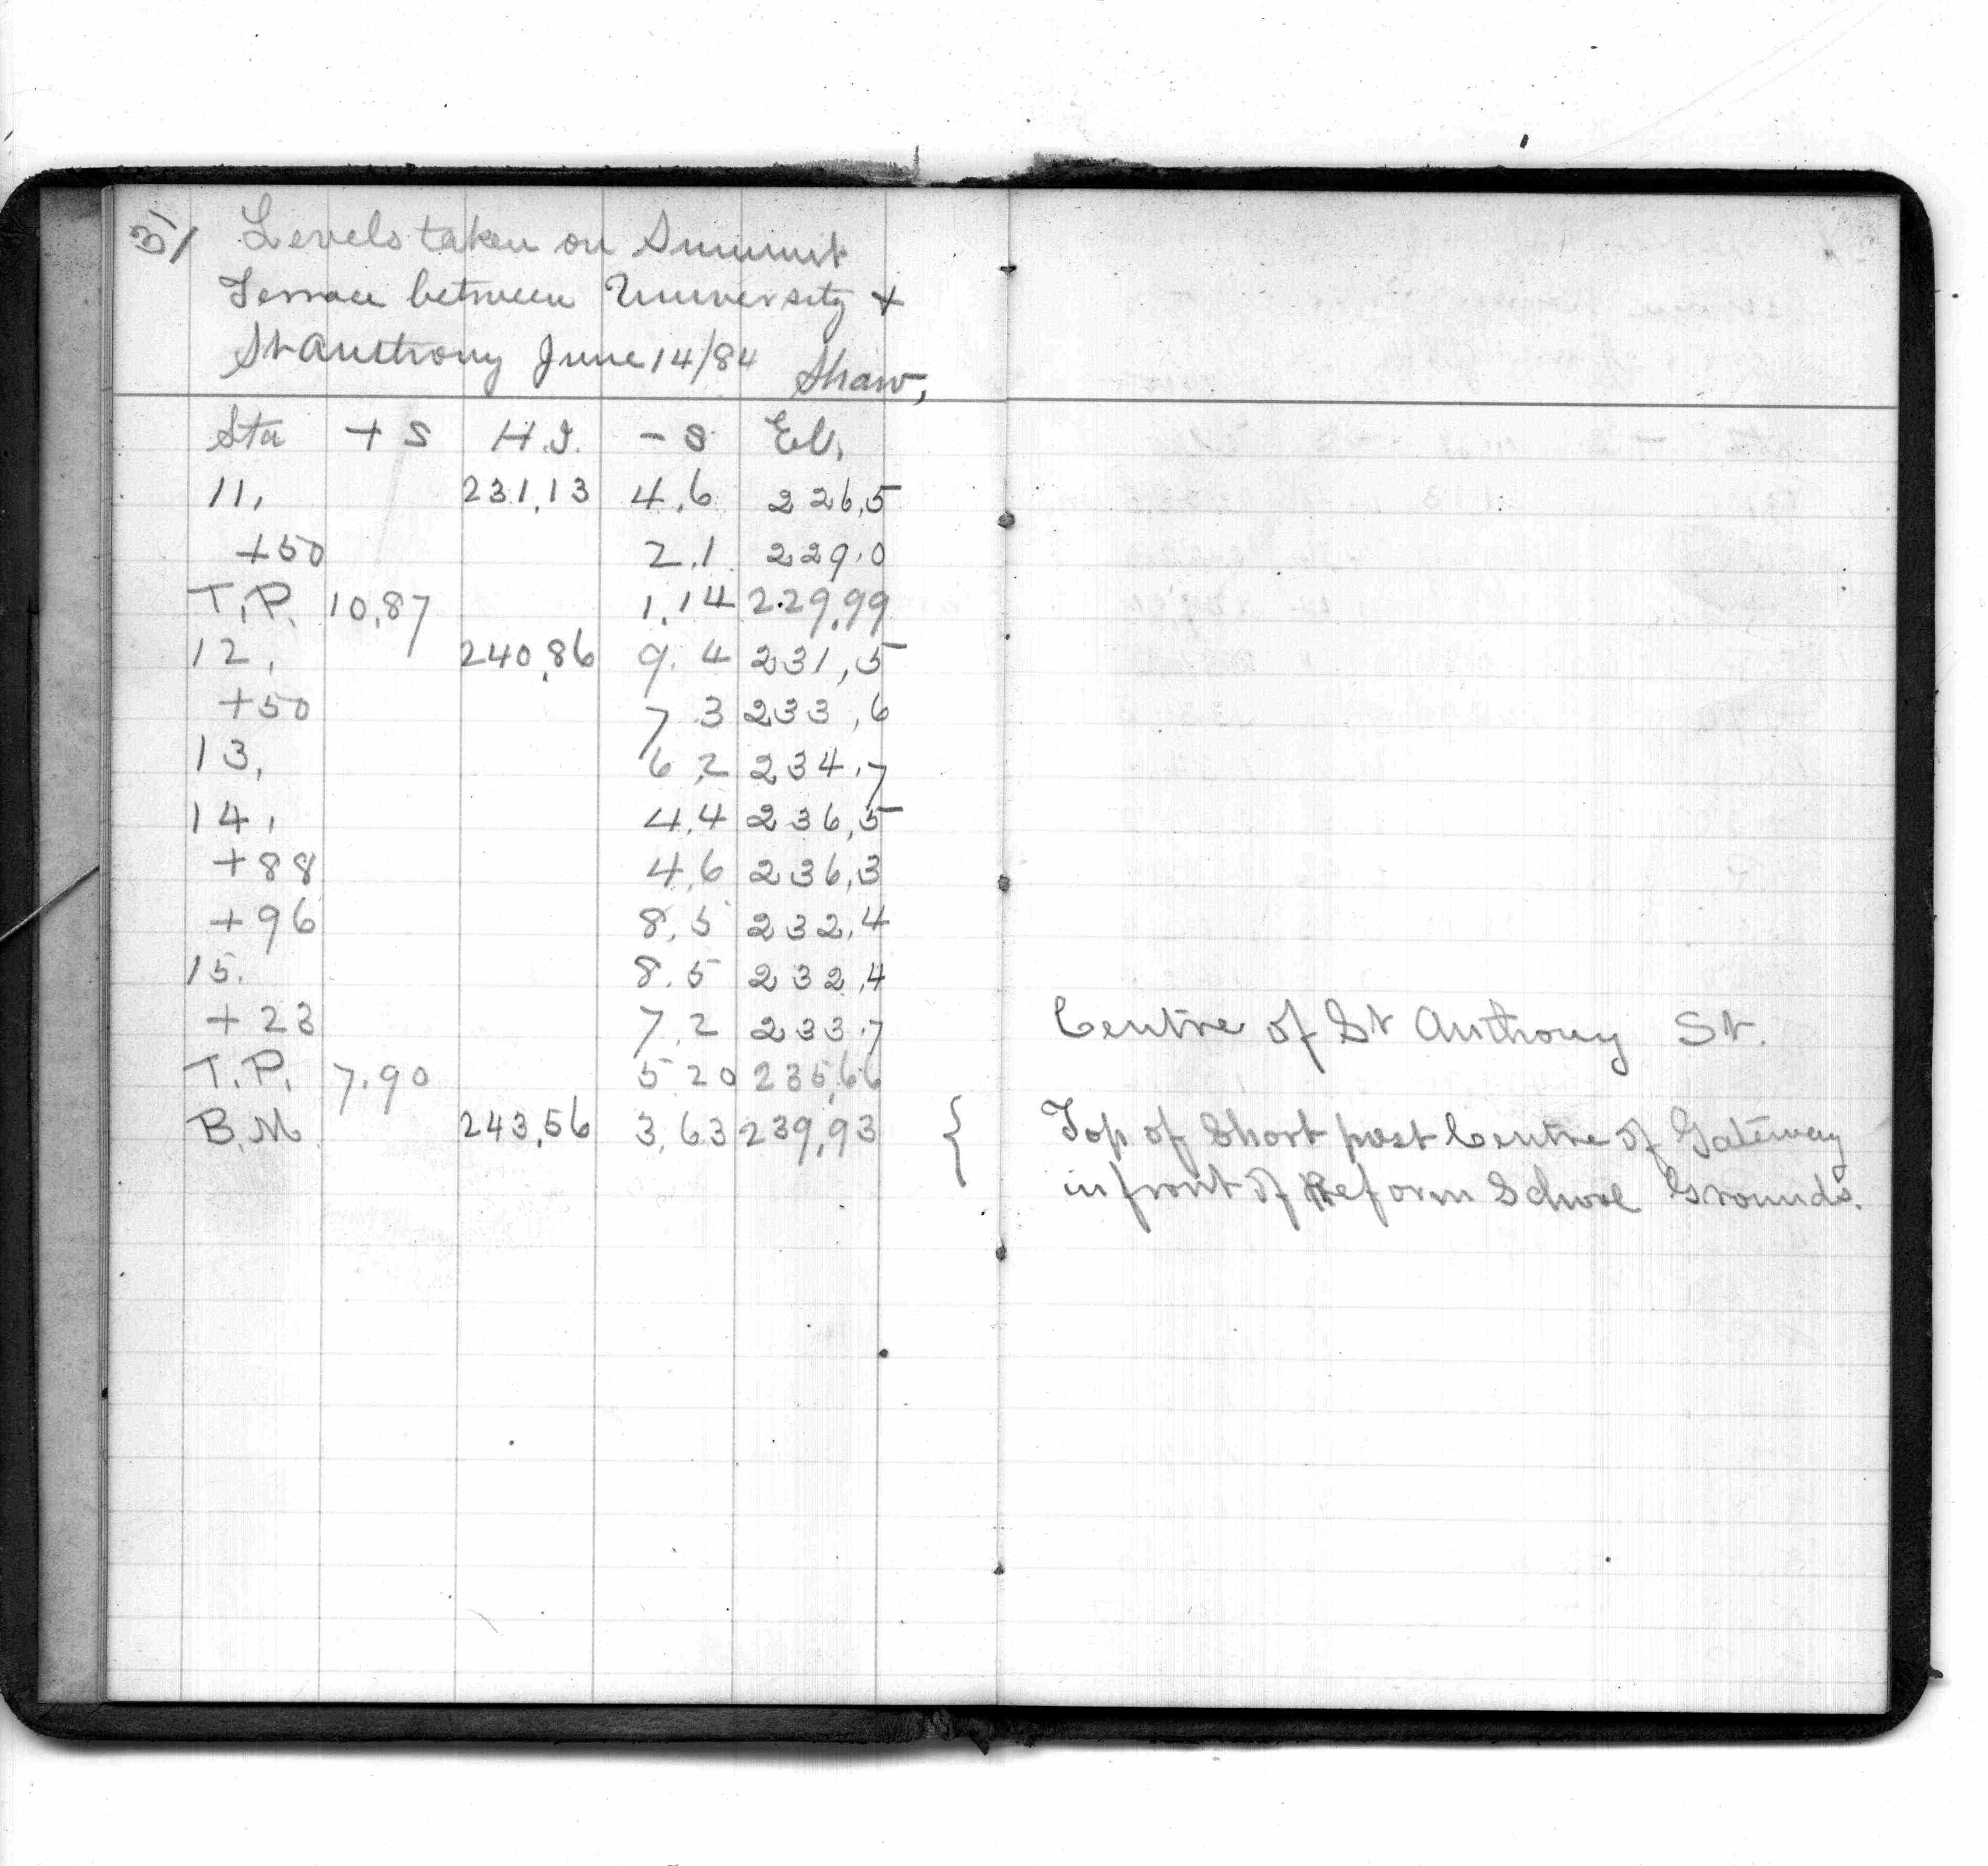 31
Levels taken on Summit
Terrace between University +
St Anthony June 14/84 Shaw,
Sta + S H.I. - S El.
11, 231,13 4,6 226,5
+50 2.1 229.0
T.P. 10,87 1,14 229,99
12, 240,86 9.4 231,5
+50 7 3 233,6
13, 6,2 234.7
14, 4,4 236,5
+88 4,6 236,3
+96 8,5 232,4
15. 8.5 232,4
+23 7,2 233.7 Centre of St Anthony St.
T.P. 7.90 5 20 235,66
B.M 243,56 3,63 239,93 { Top of Short post Centre of Gateway
in front of Reform School Grounds.